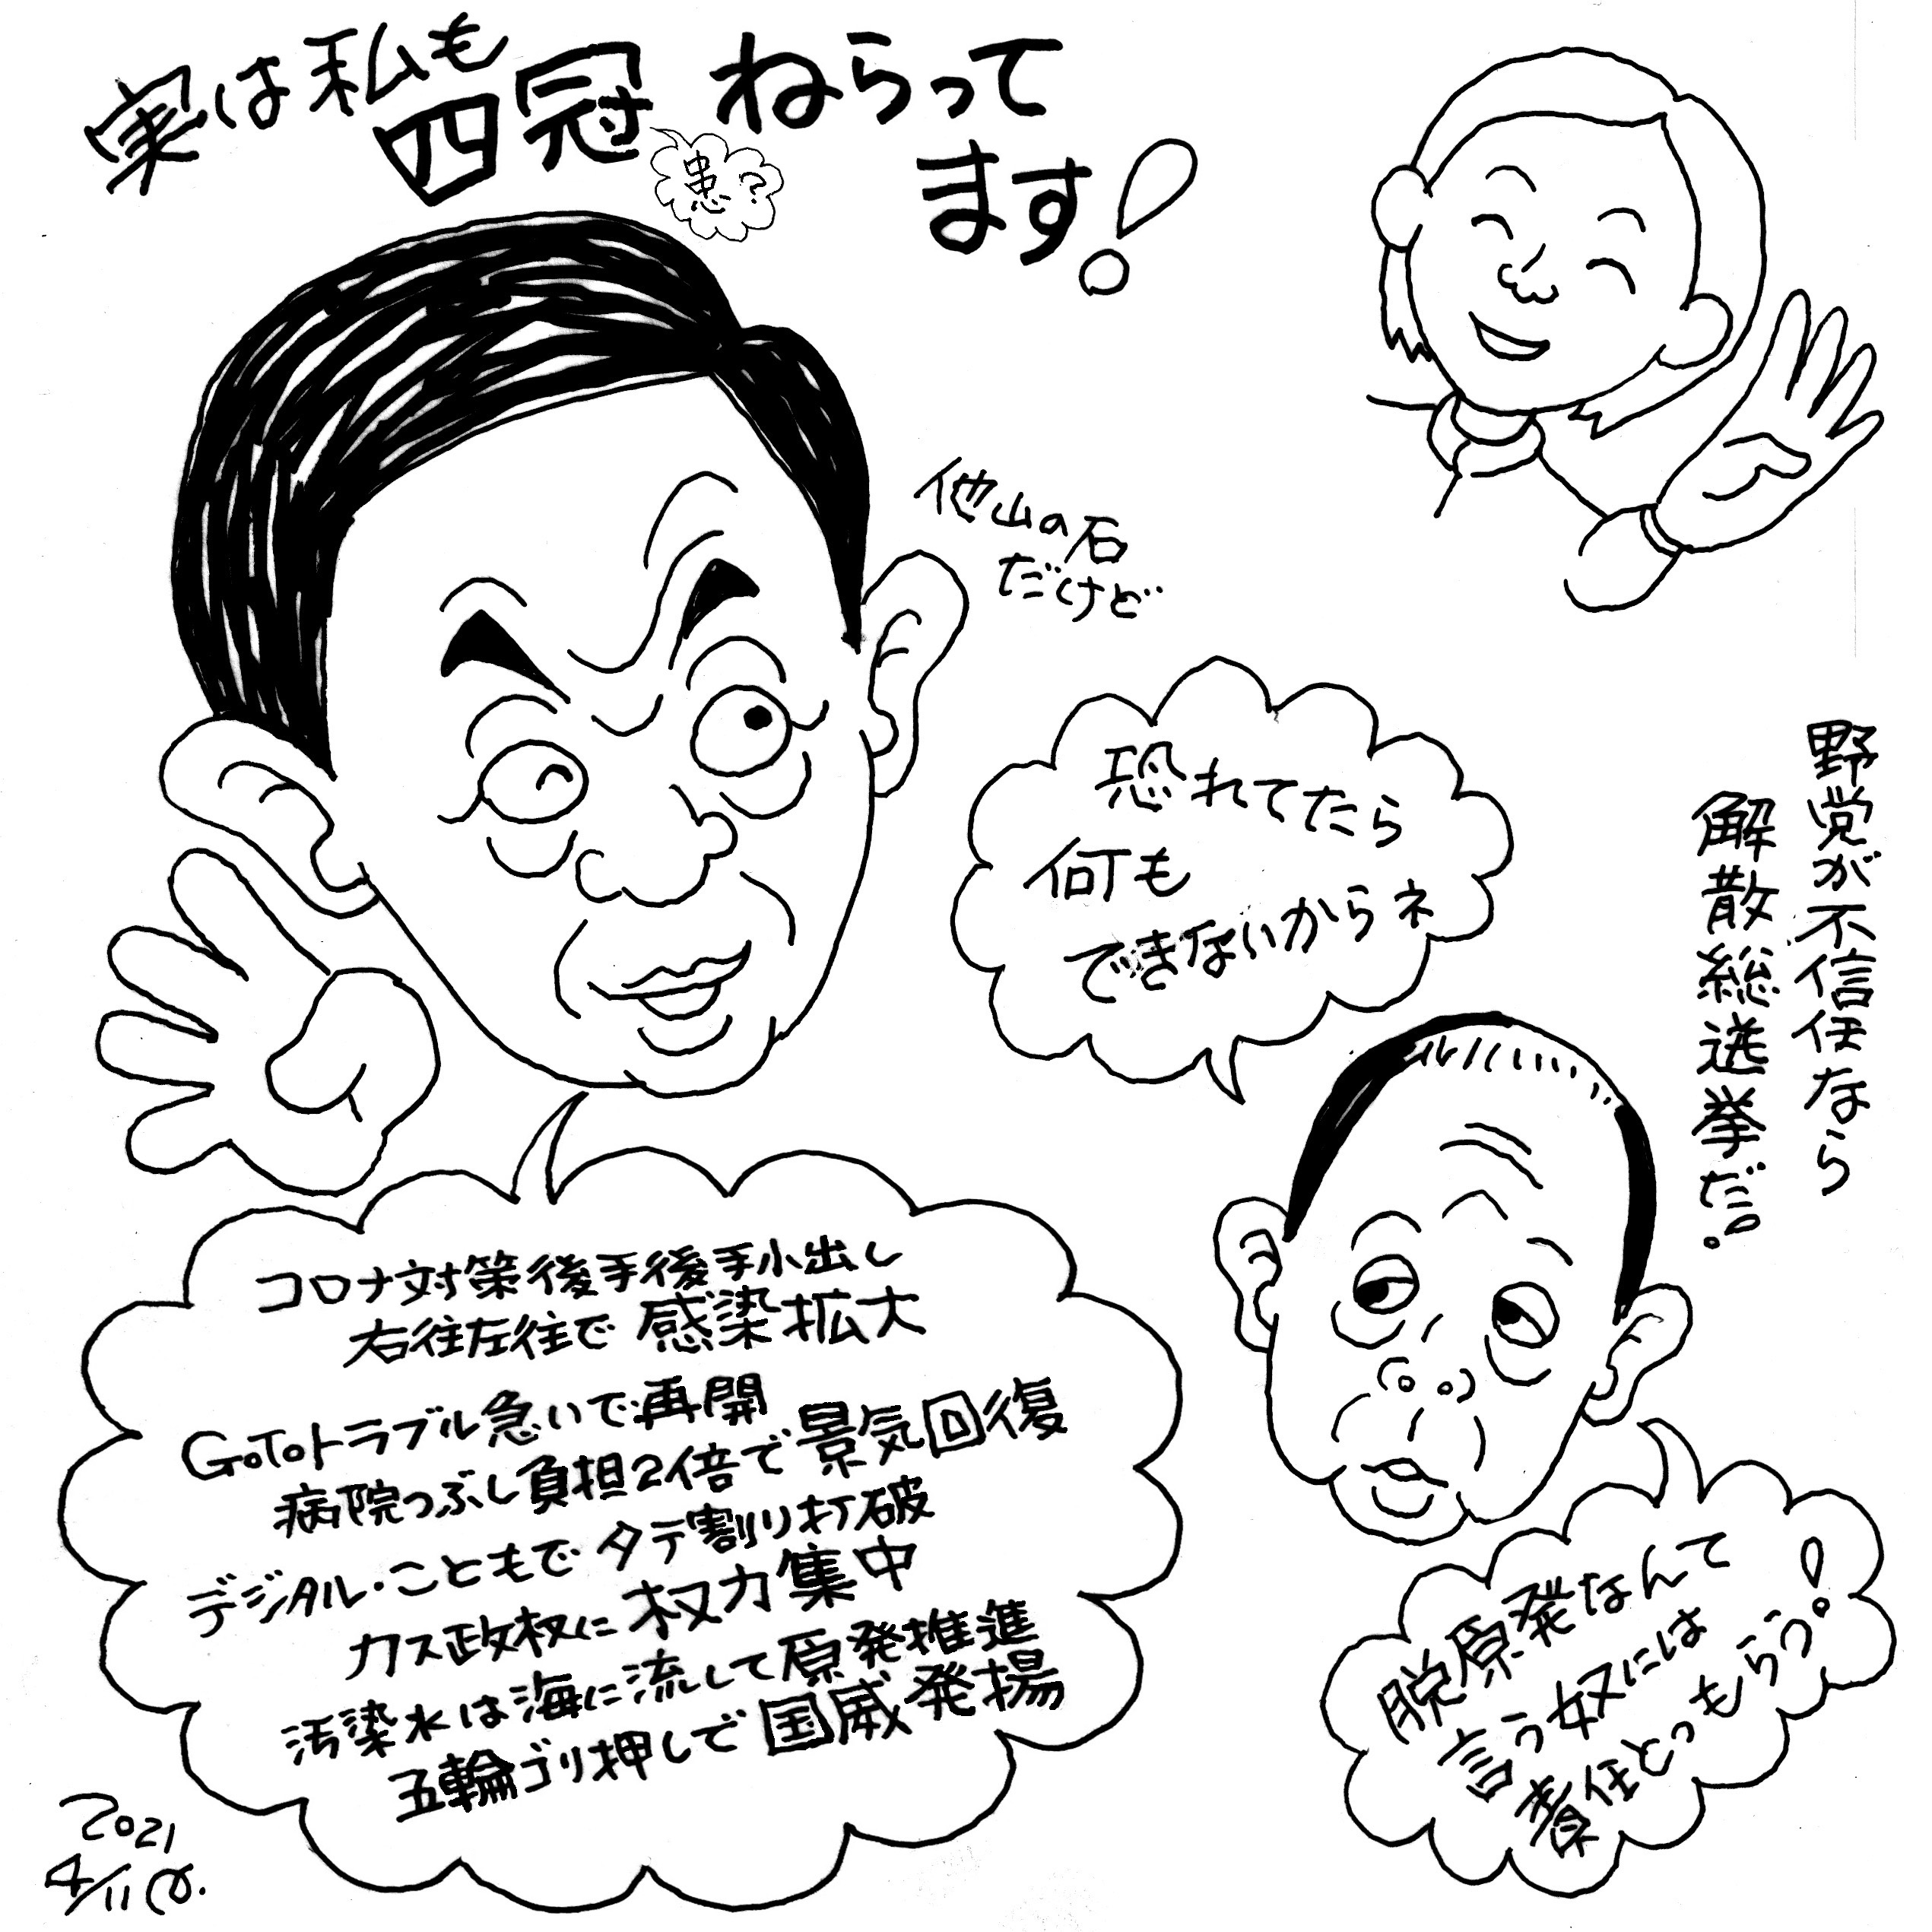 実は私も
四冠ねらって
ます!
患?
他山の石
だけど
恐れてたら
何も
できないからネ
野党が不信任なら
解散総選挙だ。
コロナ対策後手後手小出し
右往左往で感染拡大
GoToトラブル急いで再開
病院つぶし負担2倍で景気回復
デジタル・こどもでタテ割り打破
カス政权に权力集中
汚染水は海に流して原発推進
五輪ゴリ押しで国威発揚
脱原発なんて
言う奴には
責任とってもらう!
2021
4/11